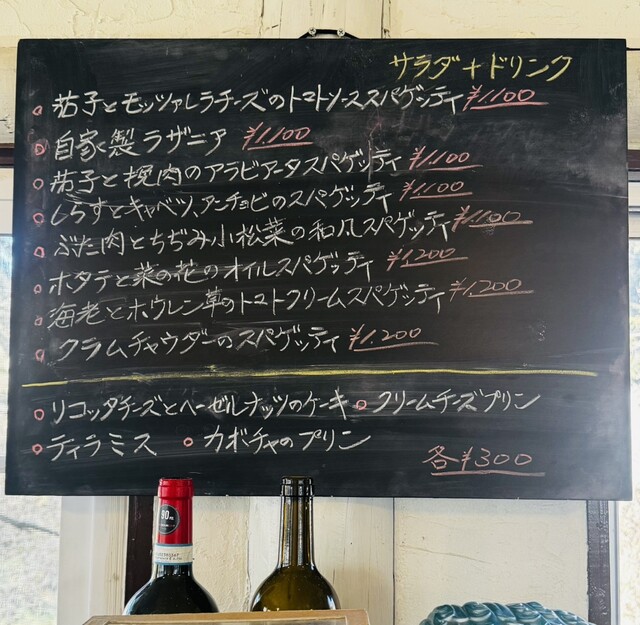 サラダ+ドリンク
茄子とモッツァレラチーズのトマトソーススパゲッティ ¥1.100
自家製ラザニア ¥1.100
茄子と挽肉のアラビアータスパゲッティ ¥1.100
しらすとキャベツ、アンチョビのスパゲッティ ¥1.100
ぶた肉とちぢみ小松菜の和風スパゲッティ ¥1.100
ホタテと菜の花のオイルスパゲッティ ¥1.200
海老とホウレン草のトマトクリームスパゲッティ ¥1.200
クラムチャウダーのスパゲッティ ¥1.200
リコッタチーズとヘーゼルナッツのケーキ クリームチーズプリン
ティラミス カボチャのプリン
各¥300
90